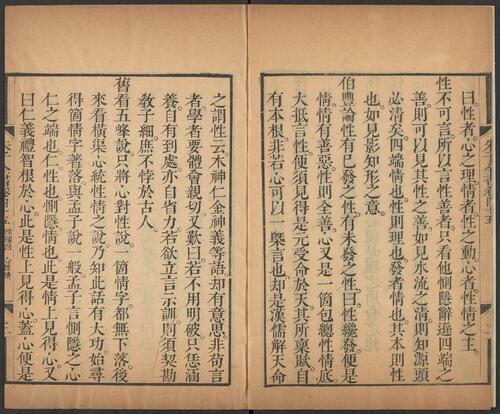 曰性者心之理情者性之動心者性情之主
性不可言所以言性善者只看他惻隱辭遜四端之
善則可以見其性之善如見水流之清則知源頭
必清矣四端情也性則理也發者情也其本則性
也如見影知形之意
伯豐論性有已發之性有未發之性曰性纔發便是
情情有善惡性則全善心又是一箇包總性情底
大抵言性便須見得是元受命於天其所稟賦自
有本根非若心可以一槩言也却是漢儒解天命
之謂性云木神仁金神義等語却有意思非苟言
者學者要體會親切又歎曰若不用明破只恁涵
養自有到處亦自省力若欲立言示訓則須契勘
教子細庶不悖於古人
舊看五峰說只將心對性說一箇情字都無下落後
來看橫渠心統性情之說乃知此話有大功始尋
得箇情字著落與孟子說一般孟子言惻隱之心
仁之端也仁性也惻隱情也此是情上見得心又
曰仁義禮智根於心此是性上見得心蓋心便是